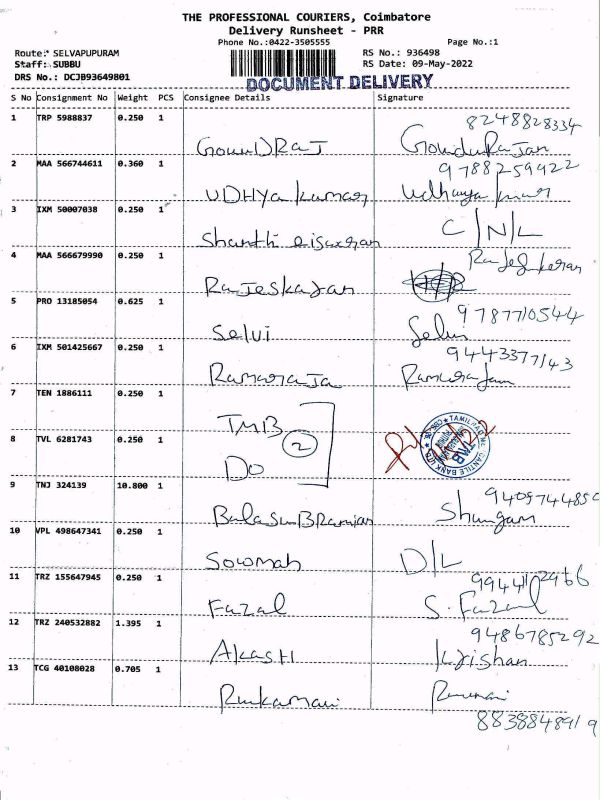 THE PROFESSIONAL COURIERS, Coimbatore
Delivery Runsheet - PRR
Phone No.:0422-3505555 Page No.:1
Route: SELVAPUPURAM RS No.: 936498
Staff: SUBBU RS Date: 09-May-2022
DRS No.: DCJB93649801 DOCUMENT DELIVERY
S No Consignment No Weight PCS Consignee Details Signature
1 TRP 5988837 0.250 1 8248828334
GownDRaJ GowduRaJan
2 MAA 566744611 0.360 1 9788259922
UDHya kumar Udhaya kumar
3 IXM 50007038 0.250 1 C/N/L
Shanthi
4 MAA 566679990 0.250 1
RaJeskaran
5 PRO 13185054 0.625 1 9787710544
Selvi Selvi
6 IXM 501425667 0.250 1 9443377143
RamaraJa
7 TEN 1886111 0.250 1
TMB
2
8 TVL 6281743 0.250 1
DO
9 TNJ 324139 10.800 1 9409744850
10 VPL 498647341 0.250 1
D/L
11 TRZ 155647945 0.250 1
Fazal S. Fazal
12 TRZ 240532882 1.395 1 9486785292
AKASH Krishan
13 TCG 40108028 0.705 1
Rukamani